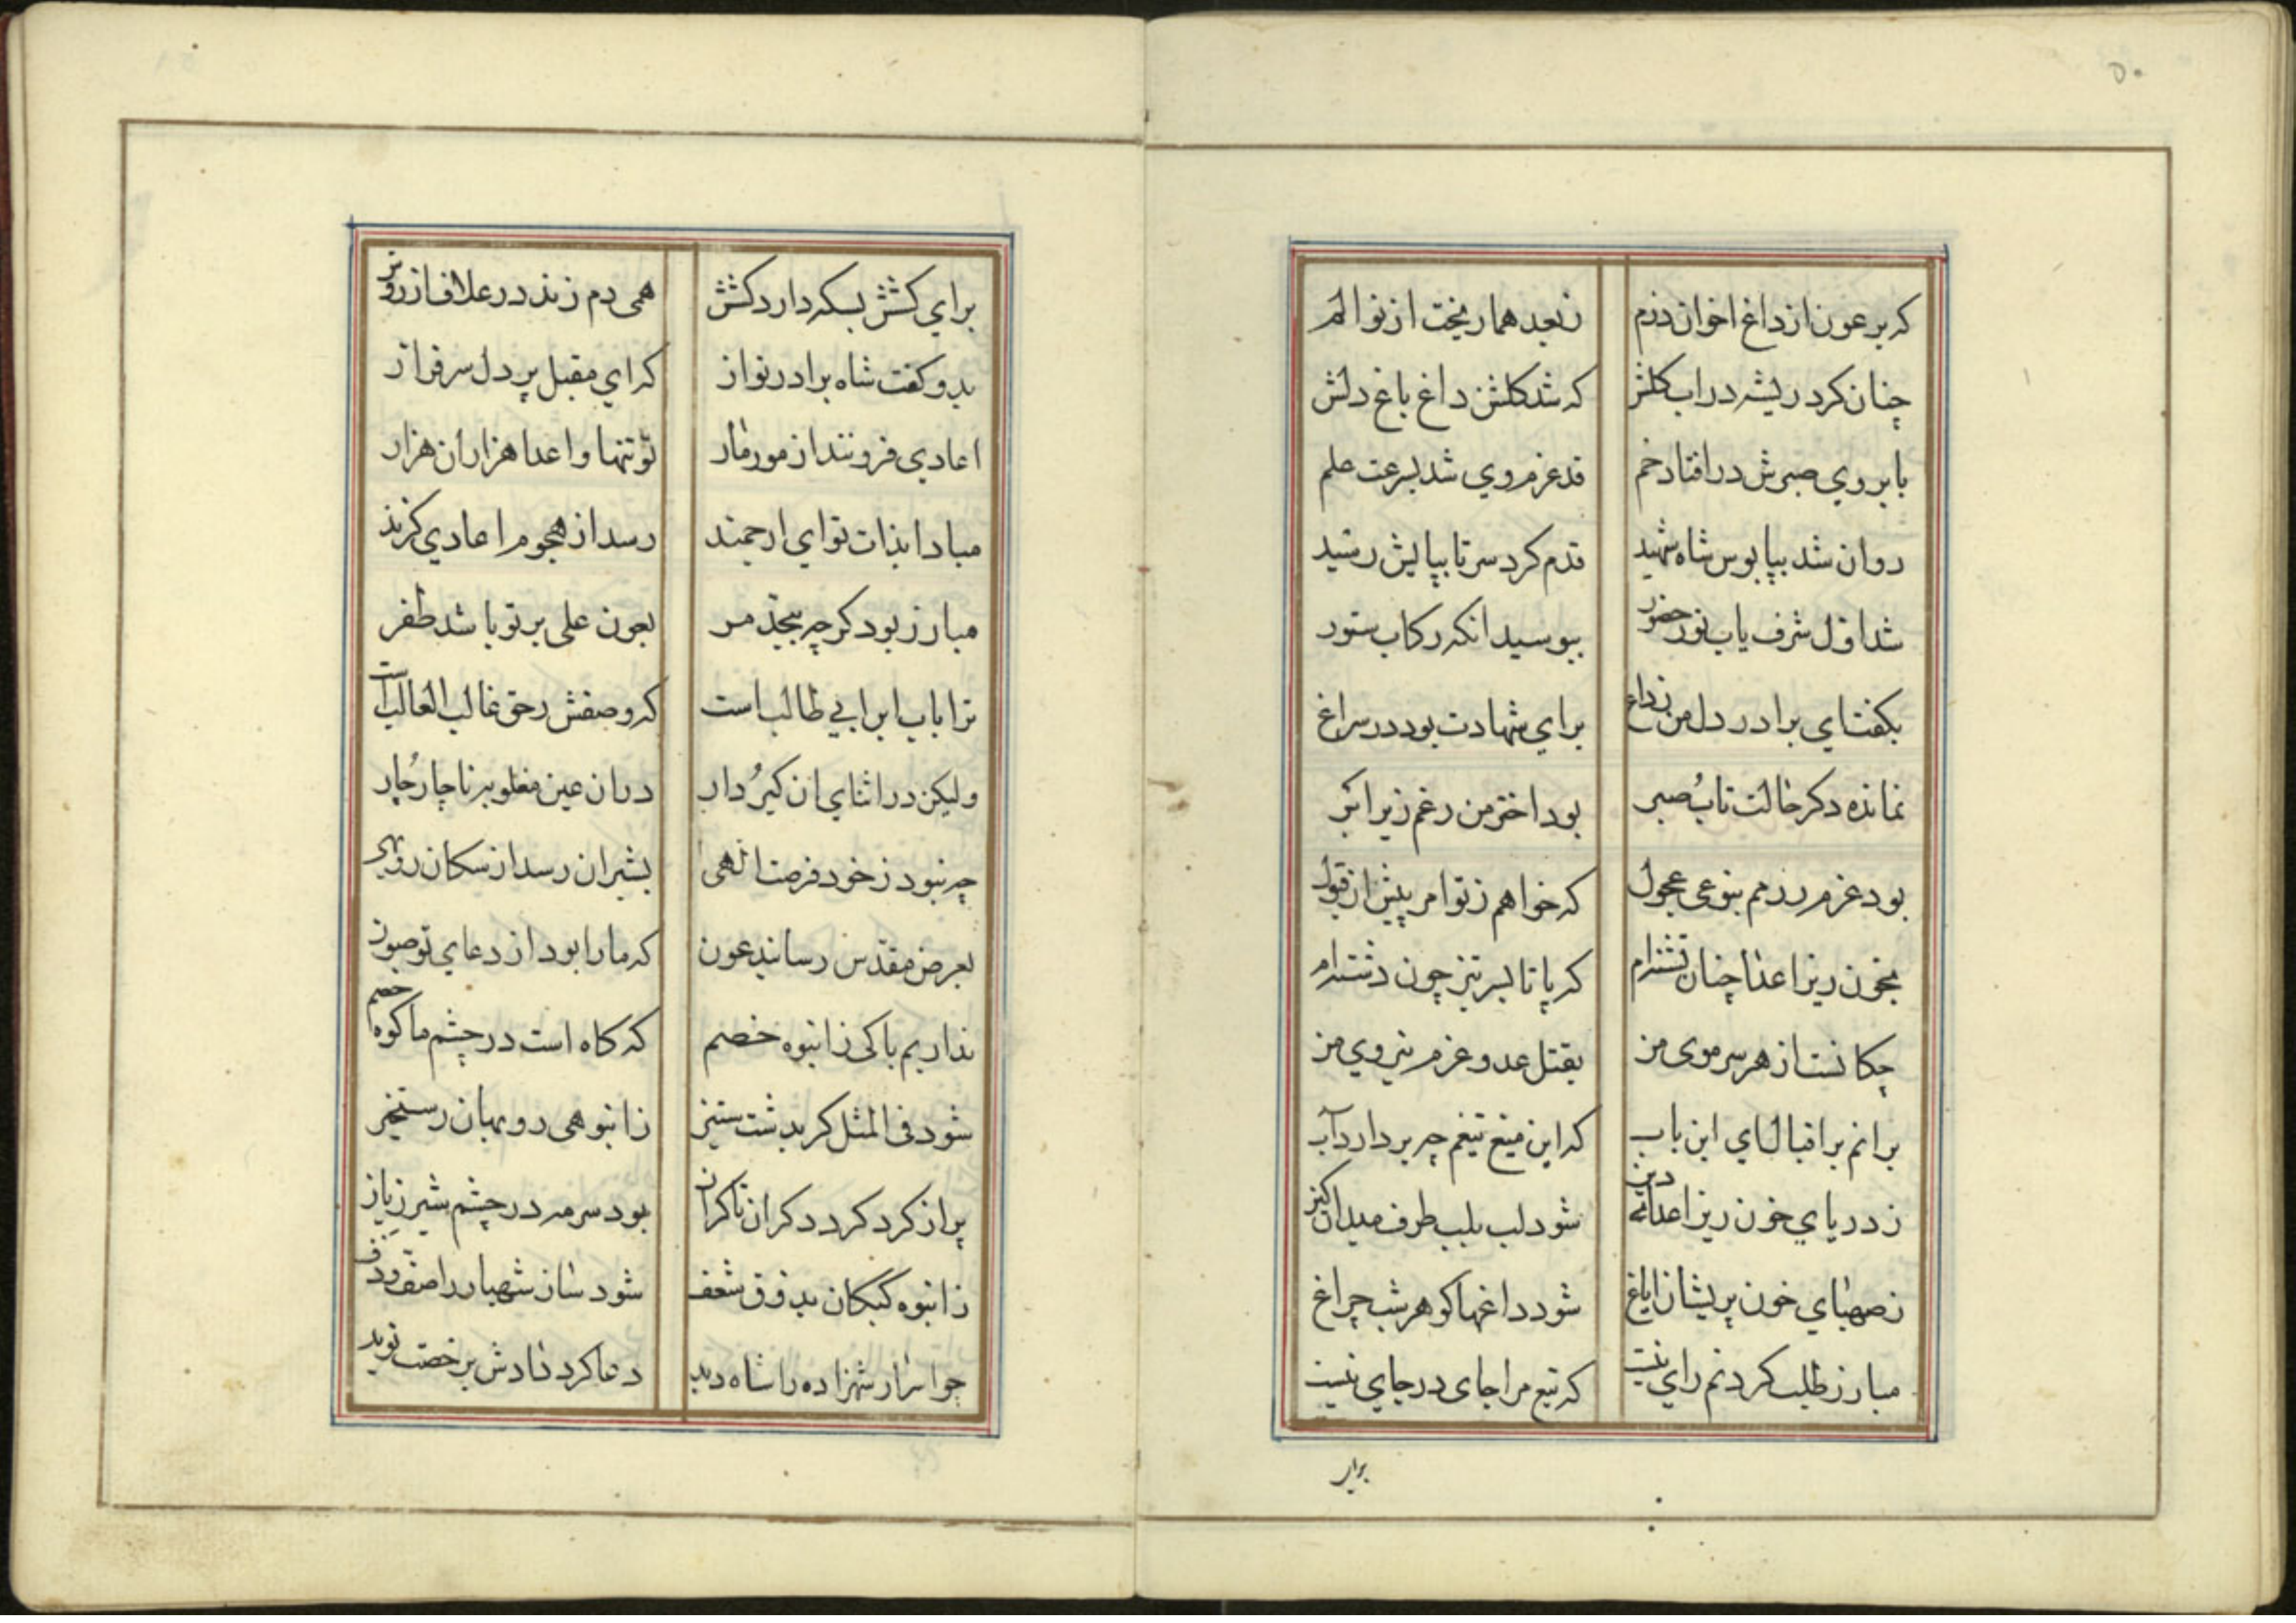 ۵۰
که بر عون از داغ اخوان دژم زبعد هما ریخت از نو الم
چنان کرد ریشه در اب کلش که شد کلشن داغ باغ دلش
بابروی صبرش در افتاد خم قد عزم وی شد بسرعت علم
روان شد بپابوس شاه شهید قدم کرد سر تا بپایش رسید
شد اول شرف یاب نور حضور ببوسید انکه رکاب ستور
بکفت ای برادر دل من زداغ برای شهادت بود در سراغ
نمانده دکر حالت تاب صبر بود اختر من زغم زیر ابر
بود عزم رزمم بنوعی عجول که خواهم ز تو امر پیش از قبول
بخون ریز اعدا چنان تشنه‌ام که پا تا بسر تیز چون دشنه‌ام
چکانست از هر سر موی من بقتل عدو عزم نیروی من
برانم بر اقبال ای ابن باب که این میغ تیغم چه بردارد آب
ز دریای خون ریز اعدای دین شود لب بلب طرف میدان کین
ز صهبای خون پریشان ایاغ شود داغها کو هر شب چراغ
مبارز طلب کردنم رای نیست که تیغ مرا جای در جای نیست
برای
برای کشش بسکه دارد کشش همی دم زند در علافاز روش
بدو کفت شاه برادر نواز که ای مقبل پر دل سرفراز
اعادی فزونند از مور مار تو تنها و اعدا هزاران هزار
مبادا بذات تو ای ارجمند رسد از هجوم اعادی کزند
مبارز بود کرچه بیحد مر بعون علی بر تو باشد ظفر
ترا باب ابرابی طالب است که وصفش زحق غالب الغالب است
ولیکن در اثنای ان کیر دار دران عین مغلوبه ناچار چار
چه نبود ز خود فرصت الهی بشیران رسد از سکان روبهی
بعرض مقدس رسانید عون که ما را بود از دعای تو صون
نداریم باکی ز انبوه خصم که کاه است در چشم ما کوه خصم
شود فی المثل کر بدشت ستیز ز انبوهی روبهان رستخیز
پر از کرد کردد کران تا کران بود سرمه در چشم شیر ژیان
ز انبوه کبکان بذوق شعف شود ساز شهباز را صف و دف
چو اسرار شهزاده را شاه دید دعا کرد دادش برخصت نوید